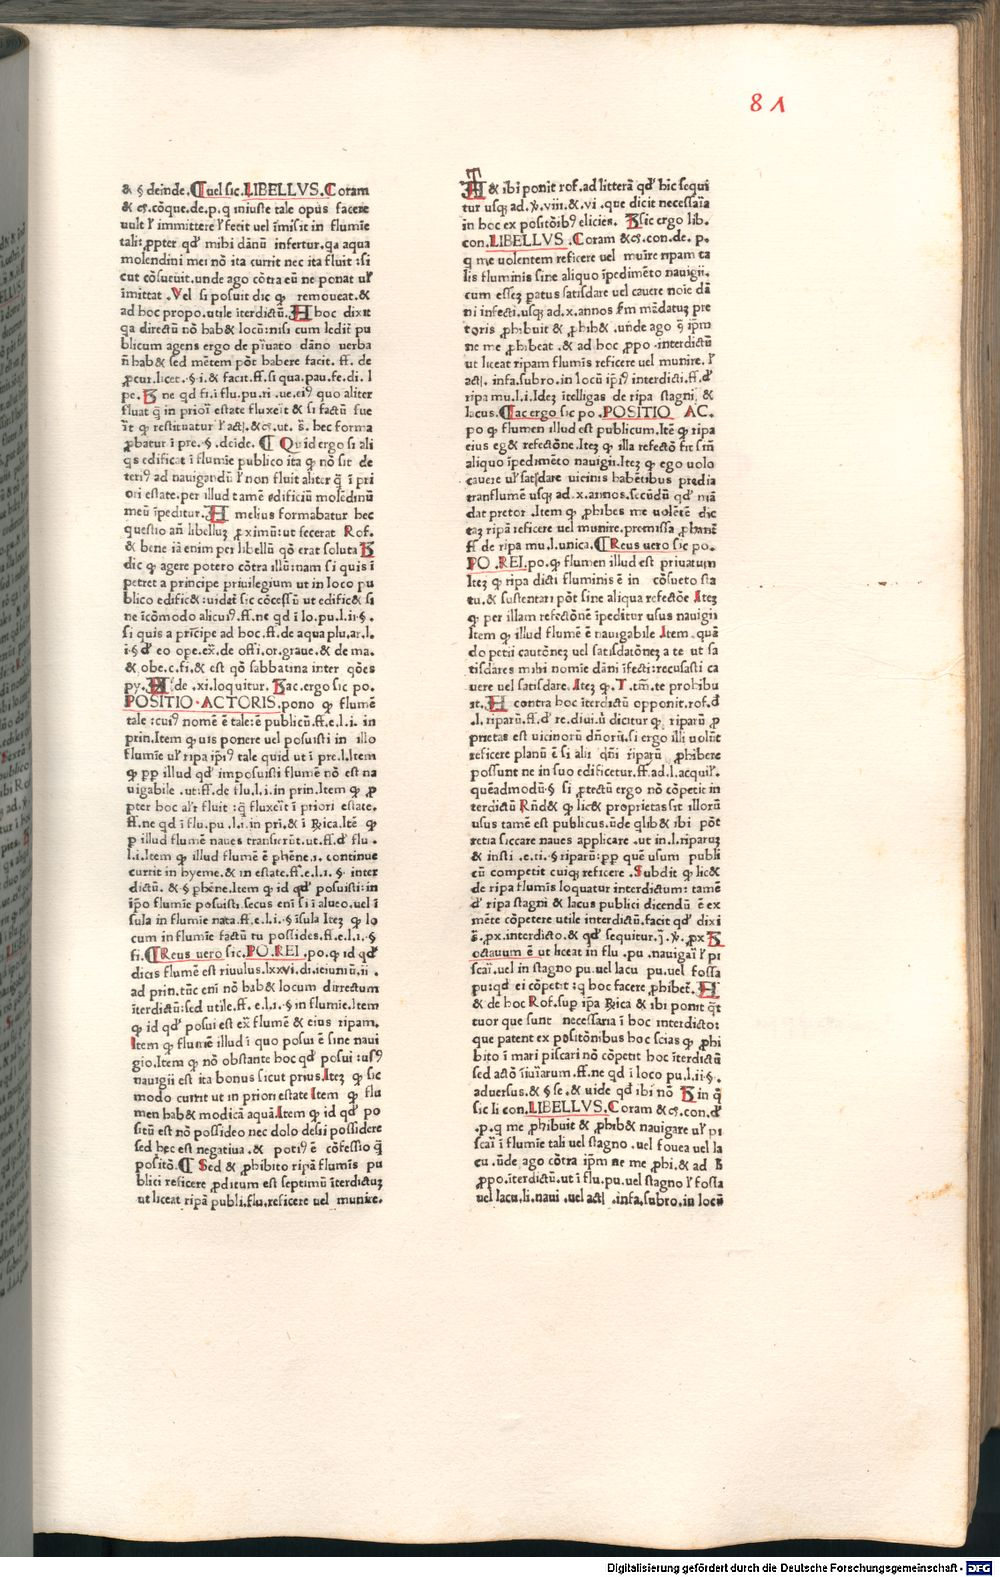 81
& § deinde. ¶ uel sic. LIBELLVS. Coram
& cꝫ. cōque. de. p. q iniuste tale opus facere
uult ł immittere ł fecit uel īmisit in flumīe
tali: ꝓpter qđ mihi dānū infertur. qa aqua
molendini mei nō ita currit nec ita fluit: si
cut cōsueuit. unde ago cōtra eū ne ponat uł
īmittat. Vel si posuit dic ꝙ remoueat. &
ad hoc propo. utile īterdictū. H hoc dixit
qa directū nō hab& locū: nisi cum ledit pu
blicum agens ergo de pꝛiuato dāno uerba
n̄ hab& sed mētem pōt habere facit. ff. de
ꝓcur. licet. § i. & facit. ff. si qua. pau. fe. di. l
pe. B ne qd fi. i flu. pu. ri. ue. ei9 quo aliter
fluat q̄ in prioꝛi estate fluxeīt & si factū fue
īt ꝙ restituatur ł actł. & cꝫ. ut. s̄. hec forma
ꝓbatur ī pre. § . deide. ¶ Quid ergo si ali
qs edificat ī flumīe publico ita ꝙ nō sit de
teri9 ad nauigandū ł non fluit aliter q̄ ī pri
ori estate. per illud tamē edificiū molēdinū
meū īpeditur. H melius formabatur hec
questio an̄ libelluꝫ ꝓximū: ut fecerat Rof.
& bene iā enim per libellū qō erat soluta B
dic ꝙ agere potero cōtra illū: nam si quis i
petret a principe priuilegium ut in loco pu
blico edific&: uidet̄ sic cōcessū ut edific& si
ne īcōmodo alicui9. ff. ne qd ī lo. pu. l. ii. § .
si quis a prīcipe ad hoc. ff. de aqua plu. ar. l.
i. § đ eo ope. ex̄. de offi. or. graue. & de ma.
& obe. c. fi. & est qō sabbatina inter qōes
py. H đe . xi. loquitur. Bac. ergo sic po.
POSITIO. ACTORIS. pono ꝙ flumē
tale: cui9 nomē ē tale: ē publicū. ff. e. l. i. in
prin. Item ꝙ uis ponere uel posuisti in illo
flumīe uł ripa ip̄i9 tale quid ut ī pre. l. Item
ꝙ pp illud qđ imposuisti flumē nō est na
uigabile . ut: ff. de flu. l. i. in prin. Item ꝙ ꝓ
pter hoc alr̄ fluit: q̄ fluxeīt ī priori estate.
ff. ne qd ī flu. pu . l. i. in pri. & ī Rꝛica. Itē ꝙ
p illud flumē naues transierūt. ut. ff. đ flu .
l. i. Item ꝙ illud flumē ē phēne. ı. continue
currit in hyeme. & in estate. ff. e. l. ı. § . inter
dictū. & § phēne. Item ꝙ id qđ posuisti: in
ip̄o flumīe posuisti. secus eni si ī alueo. uel ī
sula in flumīe nata. ff. e. l. i. § īsula Iteꝫ ꝙ lo
cum in flumīe factū tu possides. ff. e. l. ı. §
fi. ¶ Reus uero sic. PO. REI. po. ꝙ id qđ
dicis flumē est riuulus. lxxvi. di. ieiuniū. ii .
ad prin. tūc eni nō hab& locum dirrectum
īterdictū: sed utile. ff. e. l. i. § in flumīe. Item
ꝙ id qđ posui est ex̄ flumē & eius ripam.
Item ꝙ flumē illud ī quo posui ē sine naui
gio. Item ꝙ nō obstante hoc qđ posui: us9
nauigii est ita bonus sicut prius. Iteꝫ ꝙ sic
modo currit ut in priori estate Item ꝙ flu
men hab& modicā aquā. Item ꝙ id qđ po
sitū est nō possideo nec dolo desii possidere
sed hec est negatiua . & poti9 ē cōfessio q̄
positō. ¶ Sed & ꝓhibito ripā flumīs pu
blici reficere ꝓditum est septimū īterdictuꝫ
ut liceat ripā publi. flu. reficere uel munire.
H & ibi ponit rof. ad litterā qđ hic sequi
tur usqꝫ ad. ꝟ. viii. & vi . que dicit necessaīa
in hoc ex positōib9 elicies. B sic ergo lib.
con. LIBELLVS . Coram & cꝫ. con. de. p.
q me uolentem reficere uel muīre ripam ta
lis fluminis sine aliquo īpedimēto nauigii.
cum esseꝫ patus satisdare uel cauere noīe dā
ni infecti. usqꝫ ad. x. annos s̄m mādatuꝫ pre
toris ꝓhibuit & ꝓhib& . unde ago q̄ ip̄m
ne me ꝓhibeat . & ad hoc ꝓpo . interdictū
ut liceat ripam flumīs reficere uel munire. ł
actł. infa. subro. in locū ip̄i9 interdicti. ff. đ
ripa mu. l. i. Ideꝫ ītelligas de ripa stagni &
lacus. ¶ ac ergo sic po . POSITIO AC.
po ꝙ flumen illud est publicum. Itē ꝙ ripa
eius eg& refectōne. Iteꝫ ꝙ illa refectō fit sin̄
aliquo īpedimēto nauigii. Iteꝫ ꝙ ego uolo
cauere uł satisdare uicinis habētibus predia
tranflumē usqꝫ ad. x. annos. secūdū qđ mā
dat pretor . Item ꝙ ꝓhibes me uolētē dic
taꝫ ripā reficere uel munire. premissa ꝓbant̄
ff de ripa mu. l. unica. ¶ Reus uero sic po.
PO . REI. po. ꝙ flumen illud est priuatum
Iteꝫ ꝙ ripa dicti fluminis ē in cōsueto sta
tu. & sustentari pōt sine aliqua refectōe Iteꝫ
ꝙ per illam refectionē īpeditur usus nauigii
Item ꝙ illud flumē ē nauigabile Item . quā
do petii cautōneꝫ uel satisdatōneꝫ a te ut sa
tisdares mihi nomīe dāni īfecti: recusasti ca
uere uel satisdare. Iteꝫ ꝙ . T . tm̄. te prohibu
it. H contra hoc īterdictū opponit. rof. đ
. l. riparū. ff. đ re. diui. ū dicitur ꝙ riparū ꝓ
prietas est uicinorū dn̄orū. si ergo illi uolūt
reficere planū ē si alii qn̄i riparū ꝓhibere
possunt ne in suo edificetur. ff. ad. l. acquił.
quēadmodū. § si ꝓtectū ergo nō cōpetit in
terdictū Rn̄d& ꝙ lic& proprietas sit illorū
usus tamē est publicus. ūde qlib& ibi pōt
retia siccare naues applicare . ut in. l. riparuꝫ
& insti . e. ti. § riparū: pp quē usum publi
cū competit cuiqꝫ reficere . Subdit ꝙ lic&
de ripa flumīs loquatur interdictum: tamē
đ ripa stagni & lacus publici dicendū ē ex
mēte cōpetere utile interdictū. facit qđ dixi
s̄. ꝓx. interdicto. & qđ sequitur. j̄. ꝟ. ꝓx B
octauum ē ut liceat in flu . pu . nauigaī ł pi
scaī. uel in stagno pu. uel lacu pu. uel fossa
pu: qđ ei cōpetit: q hoc facere ꝓhibet̄. H
& de hoc Rof. sup ip̄a Rꝛica & ibi ponit q̄t
tuor que sunt necessaria ī hoc interdicto:
que patent ex positōnibus hoc scias ꝙ ꝓhi
bito ī mari piscari nō cōpetit hoc īterdictū
sed actō īiuīarum. ff. ne qd ī loco pu. l. ii. § .
aduersus. & § se . & uide qđ ibi nō B in q̄
sic li con. LIBELLVS. Coram & cꝫ. con. đ
. p. q me ꝓhibuit & ꝓhib& nauigare uł pi
scaī ī flumīe tali uel stagno . uel fouea uel la
cu . ūde ago cōtra ip̄m ne me ꝓhi. & ad h
ꝓpo. īterdictū. ut ī flu. pu. uel stagno ł fossa
uel lacu. li. naui . uel actł . infa. subro. in locū
Digitalisierung gefördert durch die Deutsche Forschungsgemeinschaft - DFG